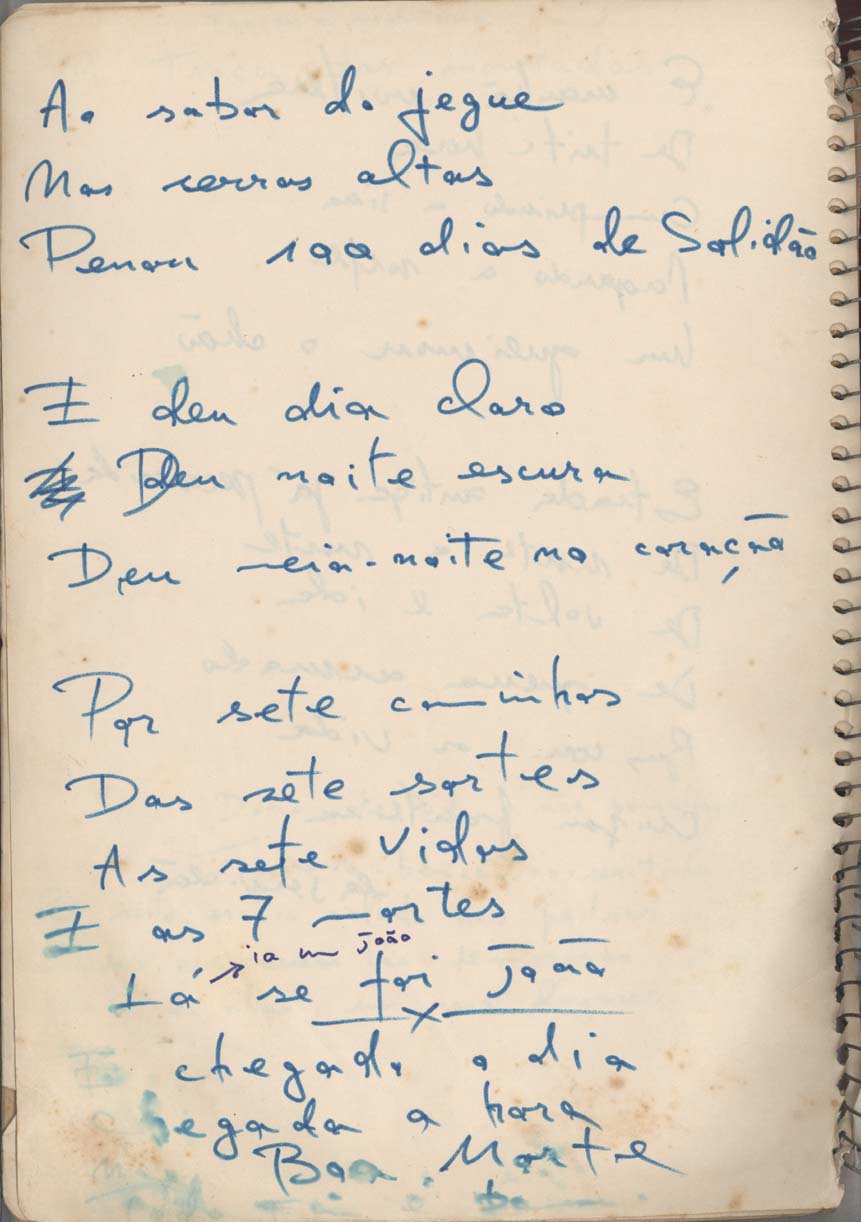 Ao sabor do jegue
Nas serras altas
Penou 100 dias de Solidão
E deu dia claro
Deu noite escura
Deu meia-noite no coração
Por sete caminhos
Das sete sortes
As sete vidas
E as 7 mortes
ia um João
Lá se foi João
chegado o dia
egada a hora
Boa Morte